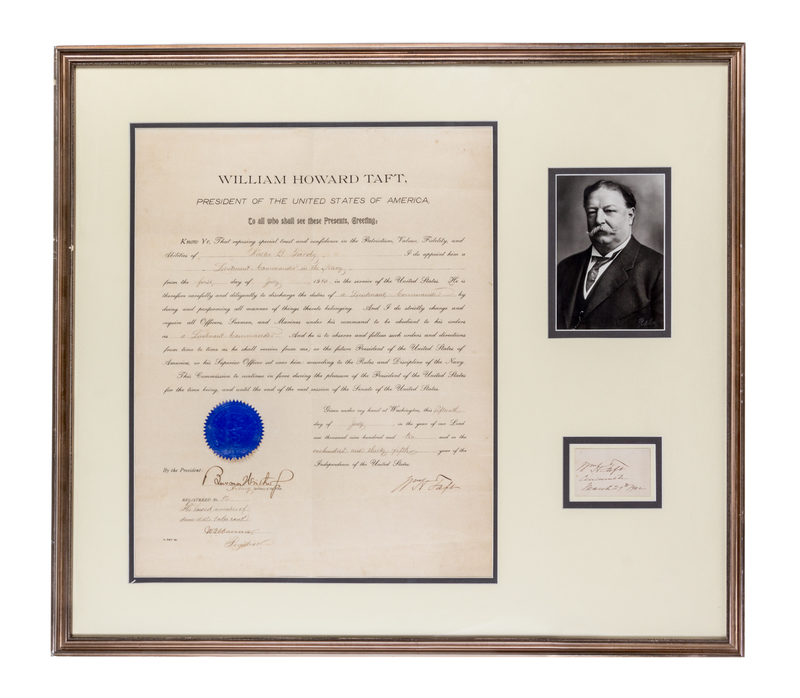 WILLIAM HOWARD TAFT,
PRESIDENT OF THE UNITED STATES OF AMERICA,
To all who shall see these Presents, Greeting:
Know Ye, That reposing special trust and confidence in the Patriotism, Valour, Fidelity, and
Abilities of I do appoint him a
Lieutenant Commander in the Navy
from the first day of July, in the service of the United States. He is
therefore carefully and diligently to discharge the duties of a Lieutenant Commander by
doing and performing all manner of things thereto belonging. And I do strictly charge and
require all Officers, Seamen, and Marines under his command to be obedient to his orders
as a Lieutenant Commander. And he is to observe and follow such orders and directions
from time to time as he shall receive from me, or the future President of the United States of
America, or his Superior Officer set over him, according to the Rules and Discipline of the Navy.
This Commission to continue in force during the pleasure of the President of the United States
for the time being, and until the end of the next session of the Senate of the United States.
Given under my hand at Washington, this fifteenth
day of July, in the year of our Lord
one thousand nine hundred and ten and in the
one hundred and thirty fifth year of the
Independence of the United States.
By the President:
Wm H Taft
REGISTERED
Wm H Taft
Cincinnati
March 29th